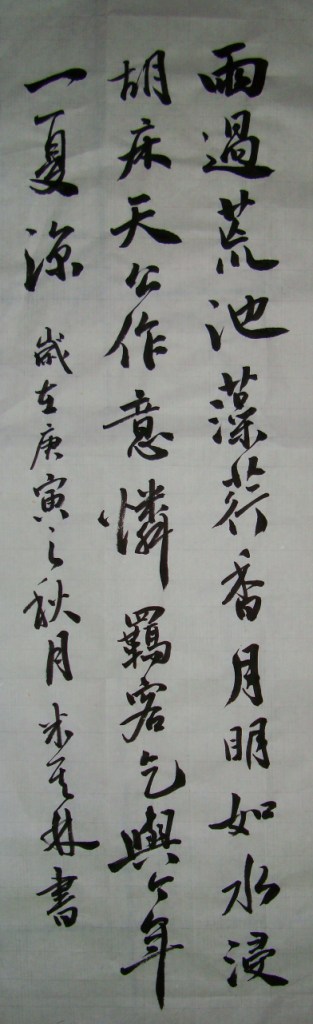 雨過荒池藻荇香月明如水浸
胡床天公作意憐羈客乞與今年
一夏涼 歲在庚寅之秋月 林書